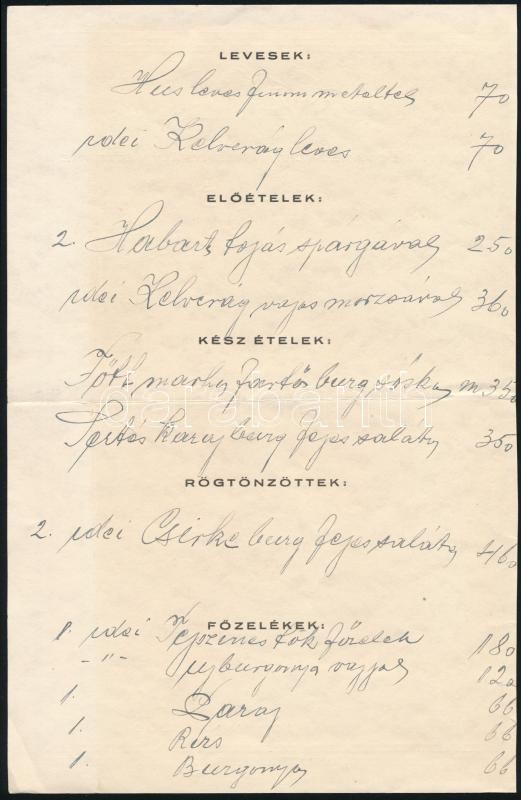 LEVESEK:
Husleves finom metélttel 70
idei Kelvirág leves 70
ELŐÉTELEK:
2. Habart tojás spárgával 250
idei Kelvirág vajas morzsával 360
KÉSZ ÉTELEK:
Főtt marha fartő burg sóska m 350
darabanth
Sertés karaj burg fejes saláta 350
RÖGTÖNZÖTTEK:
2. idei Csirke burg fejes saláta 460
FŐZELÉKEK:
1. idei Tejszines tök főzelék 180
-"- ujburgonya vajjal 120
1. Paraj 66
1. Rizs 66
1. Burgonya 66